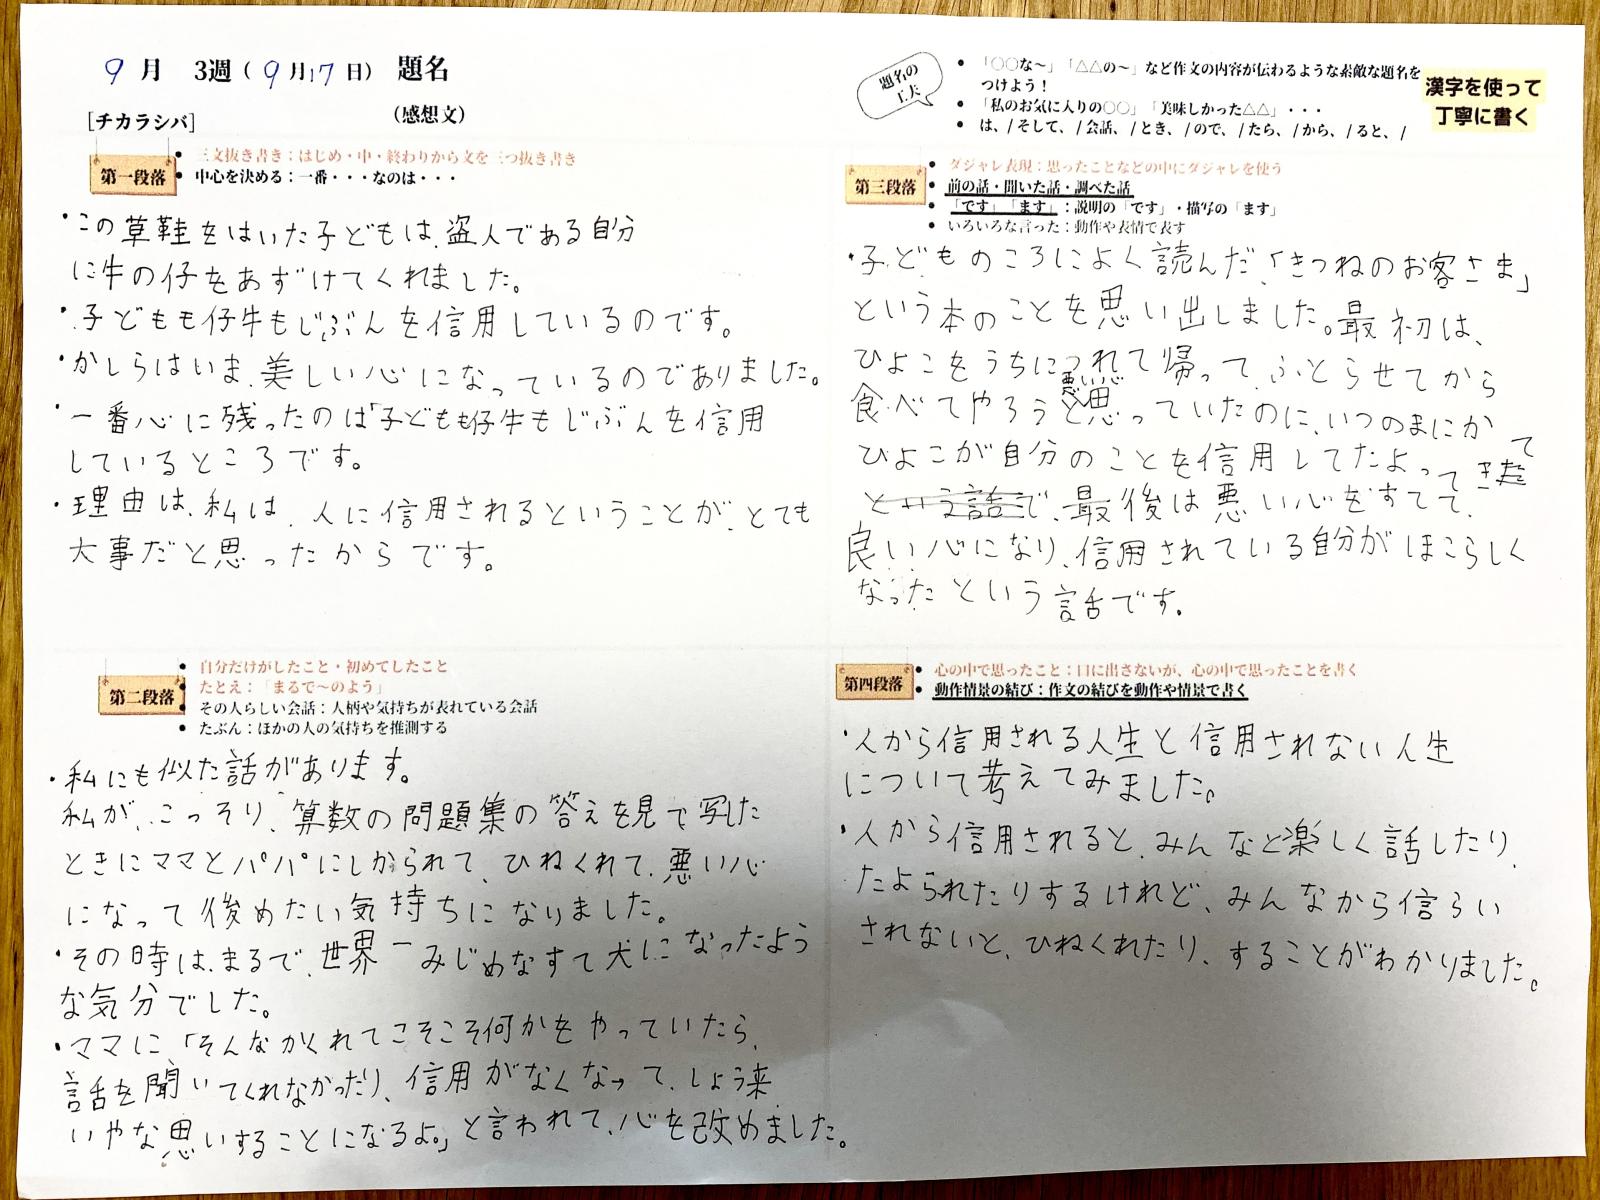 9月 3週(9月17日) 題名
(感想文)
[チカラシバ]
題名の
工夫
• 「○○な〜」「△△の〜」など作文の内容が伝わるような素敵な題名を
つけよう!
• 「私のお気に入りの○○」「美味しかった△△」・・・
• は、/そして、/会話、/とき、/ので、/たら、/から、/ると、/
漢字を使って
丁寧に書く
第一段落
• 三文抜き書き:はじめ・中・終わりから文を三つ抜き書き
• 中心を決める:一番・・・なのは・・・
・この草鞋をはいた子どもは、盗人である自分
に牛の仔をあずけてくれました。
・子どもも仔牛もじぶんを信用しているのです。
・かしらはいま、美しい心になっているのでありました。
・一番心に残ったのは「子どもも仔牛もじぶんを信用
しているところです。
・理由は、私は、人に信用されるということが、とても
大事だと思ったからです。
第二段落
• 自分だけがしたこと・初めてしたこと
• たとえ:「まるで〜のよう」
• その人らしい会話:人柄や気持ちが表れている会話
• たぶん:ほかの人の気持ちを推測する
・私にも似た話があります。
私が、こっそり、算数の問題集の答えを見て写した
ときにママとパパにしかられて、ひねくれて、悪い心
になって後めたい気持ちになりました。
・その時は、まるで、世界一みじめなすて犬になったよう
な気分でした。
・ママに、「そんなかくれてこそこそ何かをやっていたら、
話を聞いてくれなかったり、信用がなくなって、しょう来
いやな思いすることになるよ。」と言われて、心を改めました。
第三段落
• ダジャレ表現:思ったことなどの中にダジャレを使う
• 前の話・聞いた話・調べた話
• 「です」「ます」:説明の「です」・描写の「ます」
• いろいろな言った:動作や表情で表す
・子どものころによく読んだ、「きつねのお客さま」
という本のことを思い出しました。最初は、
ひよこをうちにつれて帰って、ふとらせてから
悪い心
食べてやろうと思っていたのに、いつのまにか
ひよこが自分のことを信用してたよってきて
という話で、最後は悪い心をすてて、
良い心になり、信用されている自分がほこらしく
なったという話です。
第四段落
• 心の中で思ったこと:口に出さないが、心の中で思ったことを書く
• 動作情景の結び:作文の結びを動作や情景で書く
・人から信用される人生と信用されない人生
について考えてみました。
・人から信用されると、みんなと楽しく話したり、
たよられたりするけれど、みんなから信らい
されないと、ひねくれたり、することがわかりました。